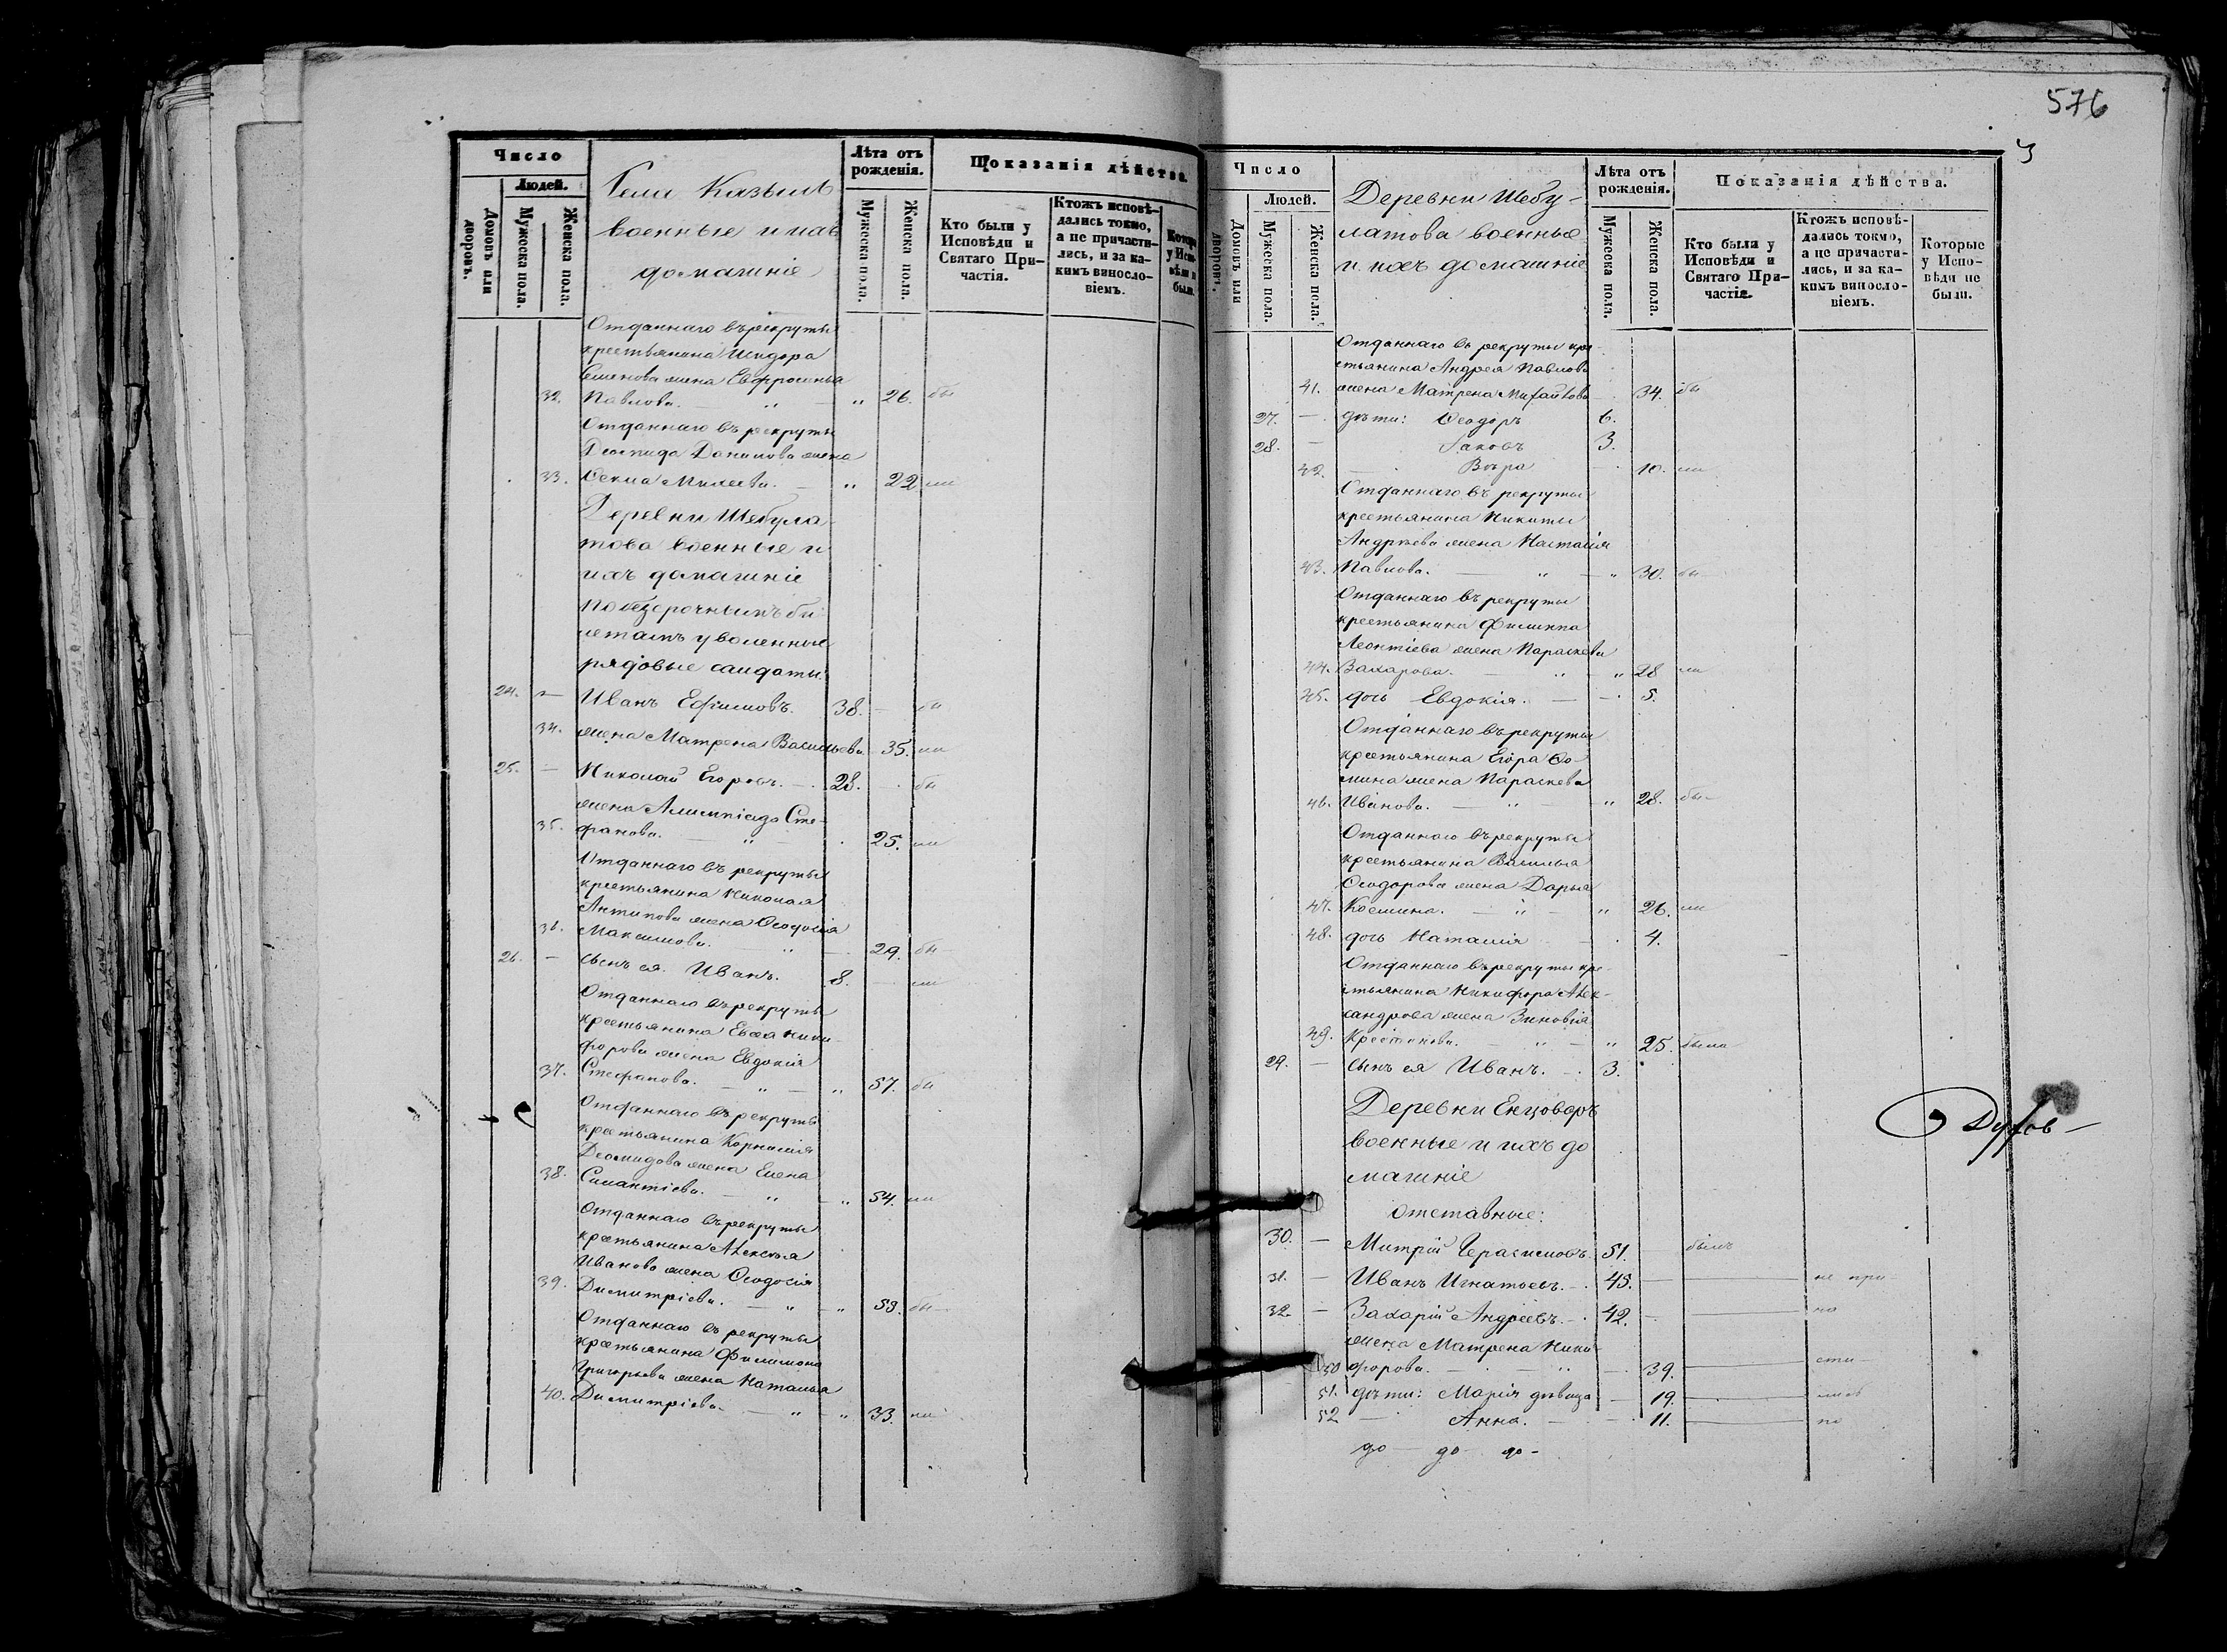 Число
Людей.
Домовъ или дворовъ.
Мужеска пола.
Женска пола.
Села Казыль
военные и ихъ
домашніе
Лѣта отъ рожденія.
Мужеска пола.
Женска пола.
Показанія дѣйства.
Кто были у Исповѣди и Святаго Причастія.
Ктожъ исповѣдались токмо, а не причастились, и за какимъ винословіемъ.
Отданнаго въ рекруты
крестьянина Исидора
Семенова жена Евфросинья
32. Павлова. — „ — „ 26. бы
Отданнаго въ рекруты
Діомида Данилова жена
33. Секла Михеева. — „ 22 ли
Деревни Шебула
това военные и
ихъ домашніе
По безсрочнымъ би
летамъ уволенные
рядовые солдаты:
24. — Иванъ Ефимовъ. 38. — бы
34. жена Матрена Васильева 35. ли
25. — Николай Егоровъ. — 28. — бы
жена Алимпіада Сте-
35. фанова. — „ — 25. ли
Отданнаго въ рекруты
крестьянина Николая
Антипова жена Ѳеодосія
36. Максимова. — „ — 29. бы
26. — сынъ ея Иванъ. 8. — ли
Отданнаго въ рекруты
крестьянина Евсея Ники-
форова жена Евдокія
37. Стефанова. — „ — „ 57. бы
Отданнаго въ рекруты
крестьянина Корнилія
Діомидова жена Елена
38. Силантіева. — „ — „ 54. ли
Отданнаго въ рекруты
крестьянина Алексѣя
Иванова жена Ѳеодосія
39. Димитріева. — „ — „ 53. бы
Отданнаго въ рекруты
крестьянина Филимона
Григорьева жена Наталья
40. Димитріева. — „ — „ 33. ли
576
3
Число
Людей.
Домовъ или дворовъ.
Мужеска пола.
Женска пола.
Деревни Шебу-
латова военные
и ихъ домашніе
Лѣта отъ рожденія.
Мужеска пола.
Женска пола.
Показанія дѣйства.
Кто были у Исповѣди и Святаго Причастія.
Ктожъ исповѣдались токмо, а не причастились, и за какимъ винословіемъ.
Которые у Исповѣди не были.
Отданнаго въ рекруты кре-
стьянина Андрея Павлова
41. жена Матрена Михайлова 34. бы
27. — дѣти: Ѳеодоръ 6.
28. — Іаковъ 3.
42. — Вѣра — 10. ли
Отданнаго въ рекруты
крестьянина Никиты
Андреева жена Настасія
43. Павлова. — „ — „ 30. бы
Отданнаго въ рекруты
крестьянина Филиппа
Леонтіева жена Параскева
44. Захарова. — „ — „ 28 ли
45. дочь Евдокія. — 5.
Отданнаго въ рекруты
крестьянина Егора Ѳо-
мина жена Параскева
46. Иванова. — „ — „ 28. бы
Отданнаго въ рекруты
крестьянина Василья
Ѳеодорова жена Дарья
47. Космина. — „ — „ 26. ли
48. дочь Наталія 4.
Отданнаго въ рекруты кре-
стьянина Никифора Алек-
сандрова жена Зиновія
49. — „ — „ 25. была
29. — сынъ ея Иванъ. — 3.
Деревни
военные и ихъ до
машніе
отставные:
30. — Митрій Герасимовъ 51. былъ
31. — Иванъ Игнатьевъ. — 45. — не при
32. — Захарій Андреевъ. — 42. —
жена Матрена Ники
50 форова. — „ — 39.
51. дѣти: Марія дѣвица — 19.
52 — Анна. — 11. по
до — до — до —
Духов—